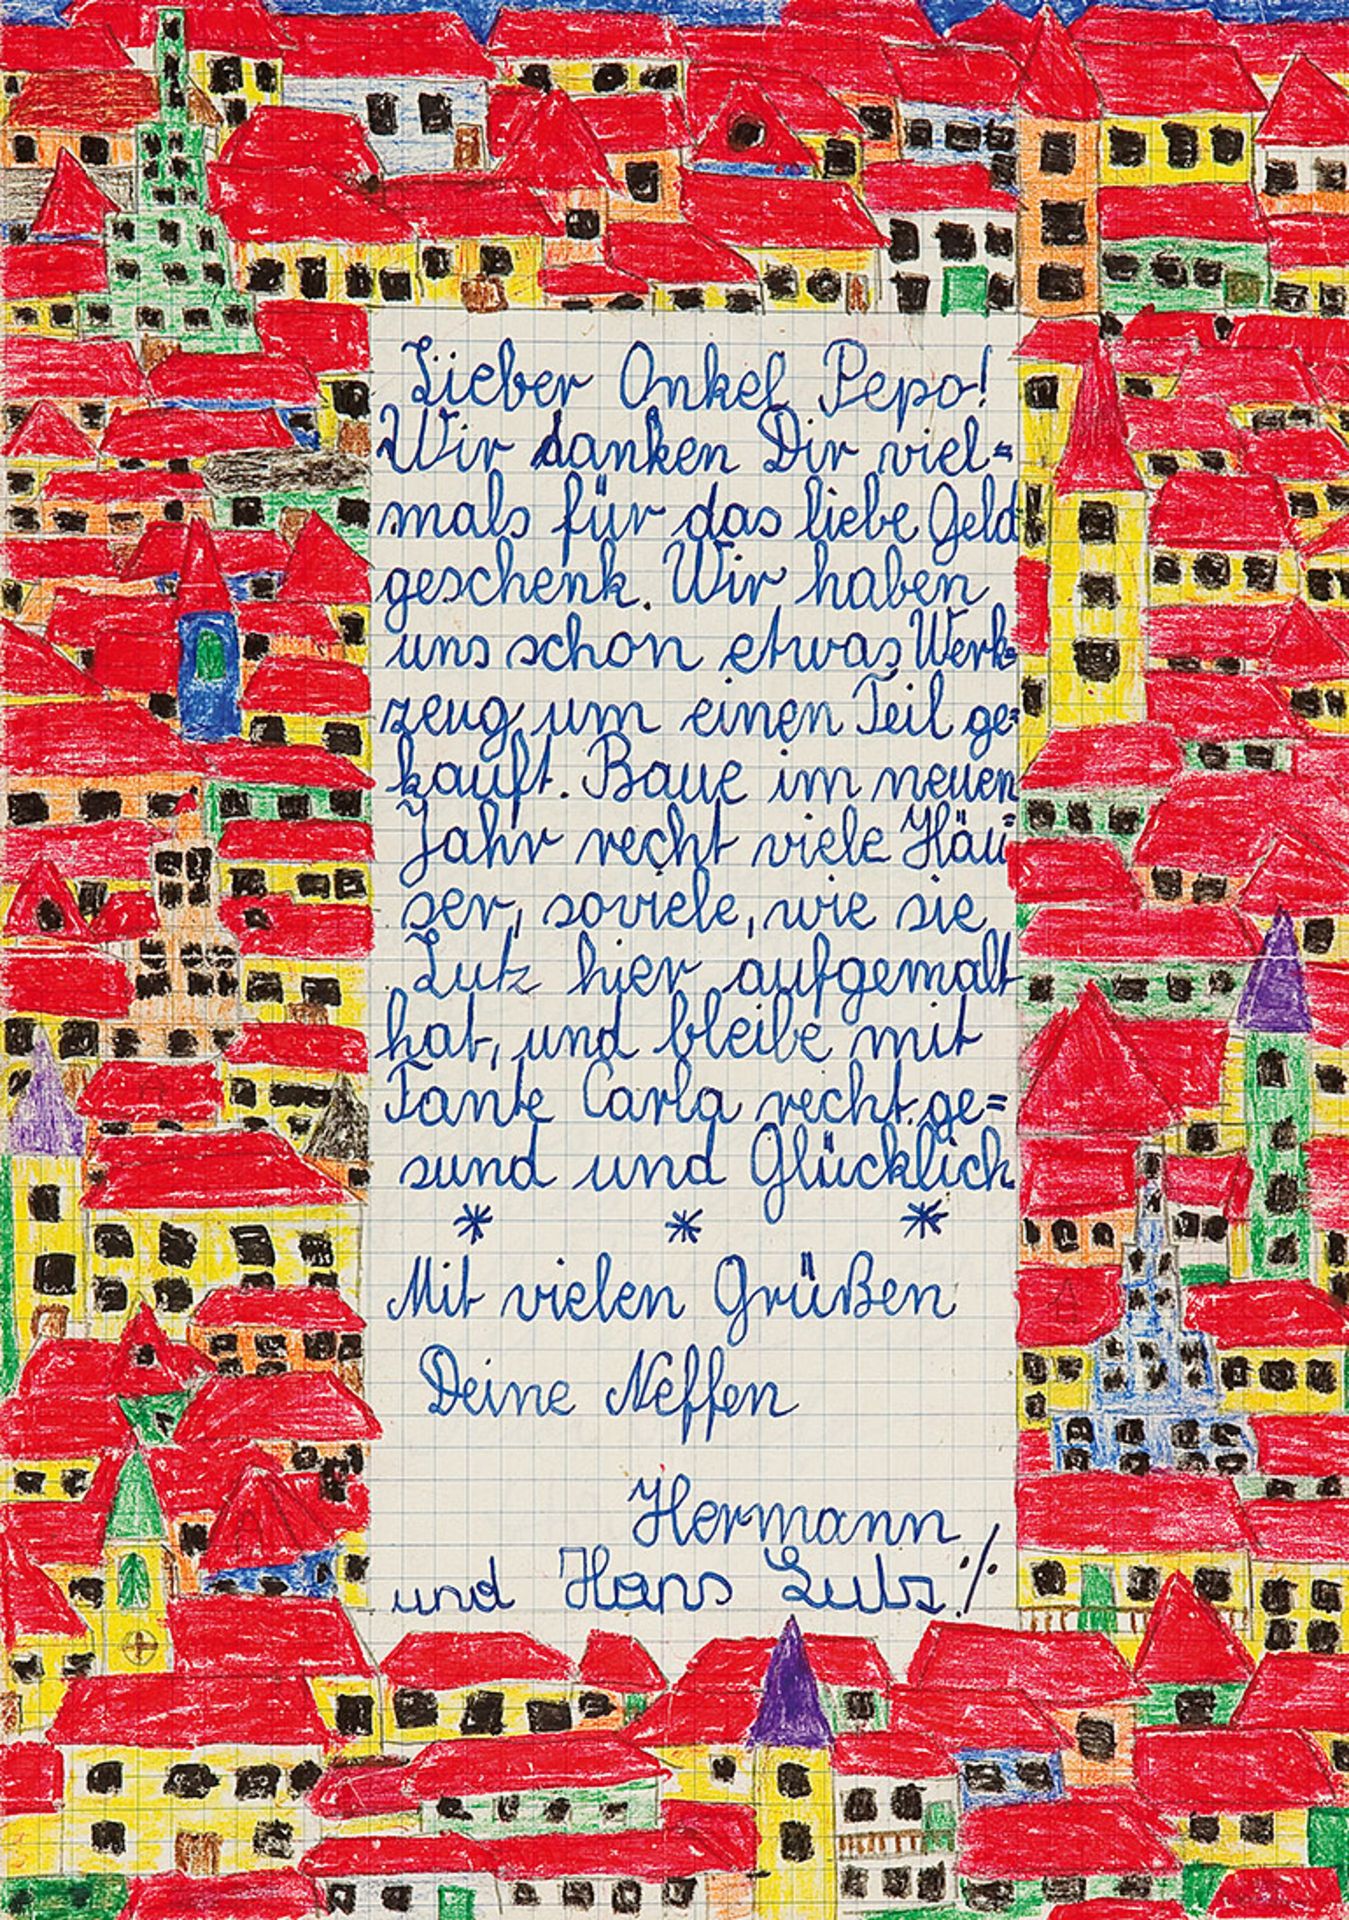 Lieber Onkel Pepo!
Wir danken Dir viel=
mals für das liebe Geld
geschenk. Wir haben
uns schon etwas Werk=
zeug um einen Teil ge=
kauft. Baue im neuen
Jahr recht viele Häu=
ser, soviele, wie sie
Lutz hier aufgemalt
hat, und bleibe mit
Tante Carla recht ge=
sund und Glücklich
* * *
Mit vielen Grüßen
Deine Neffen
Hermann
und Hans Lutz ./.